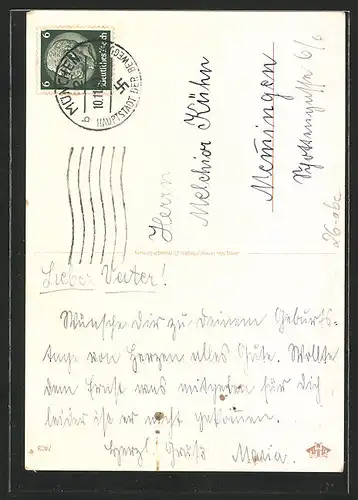 6 Deutsches Reich 6
MÜNCHEN
10.11.
HAUPTSTADT DER BEWEG
b
Herrn
Melchior Kühn
Memmingen
Schottengasse 6/0
Lieber Vater!
Wünsche Dir zu Deinem Geburts-
tage von Herzen alles Gute. Wollte
dem Ernst was mitgeben für Dich
leider ist er nicht gekommen.
Herzl. Gruß Maria.